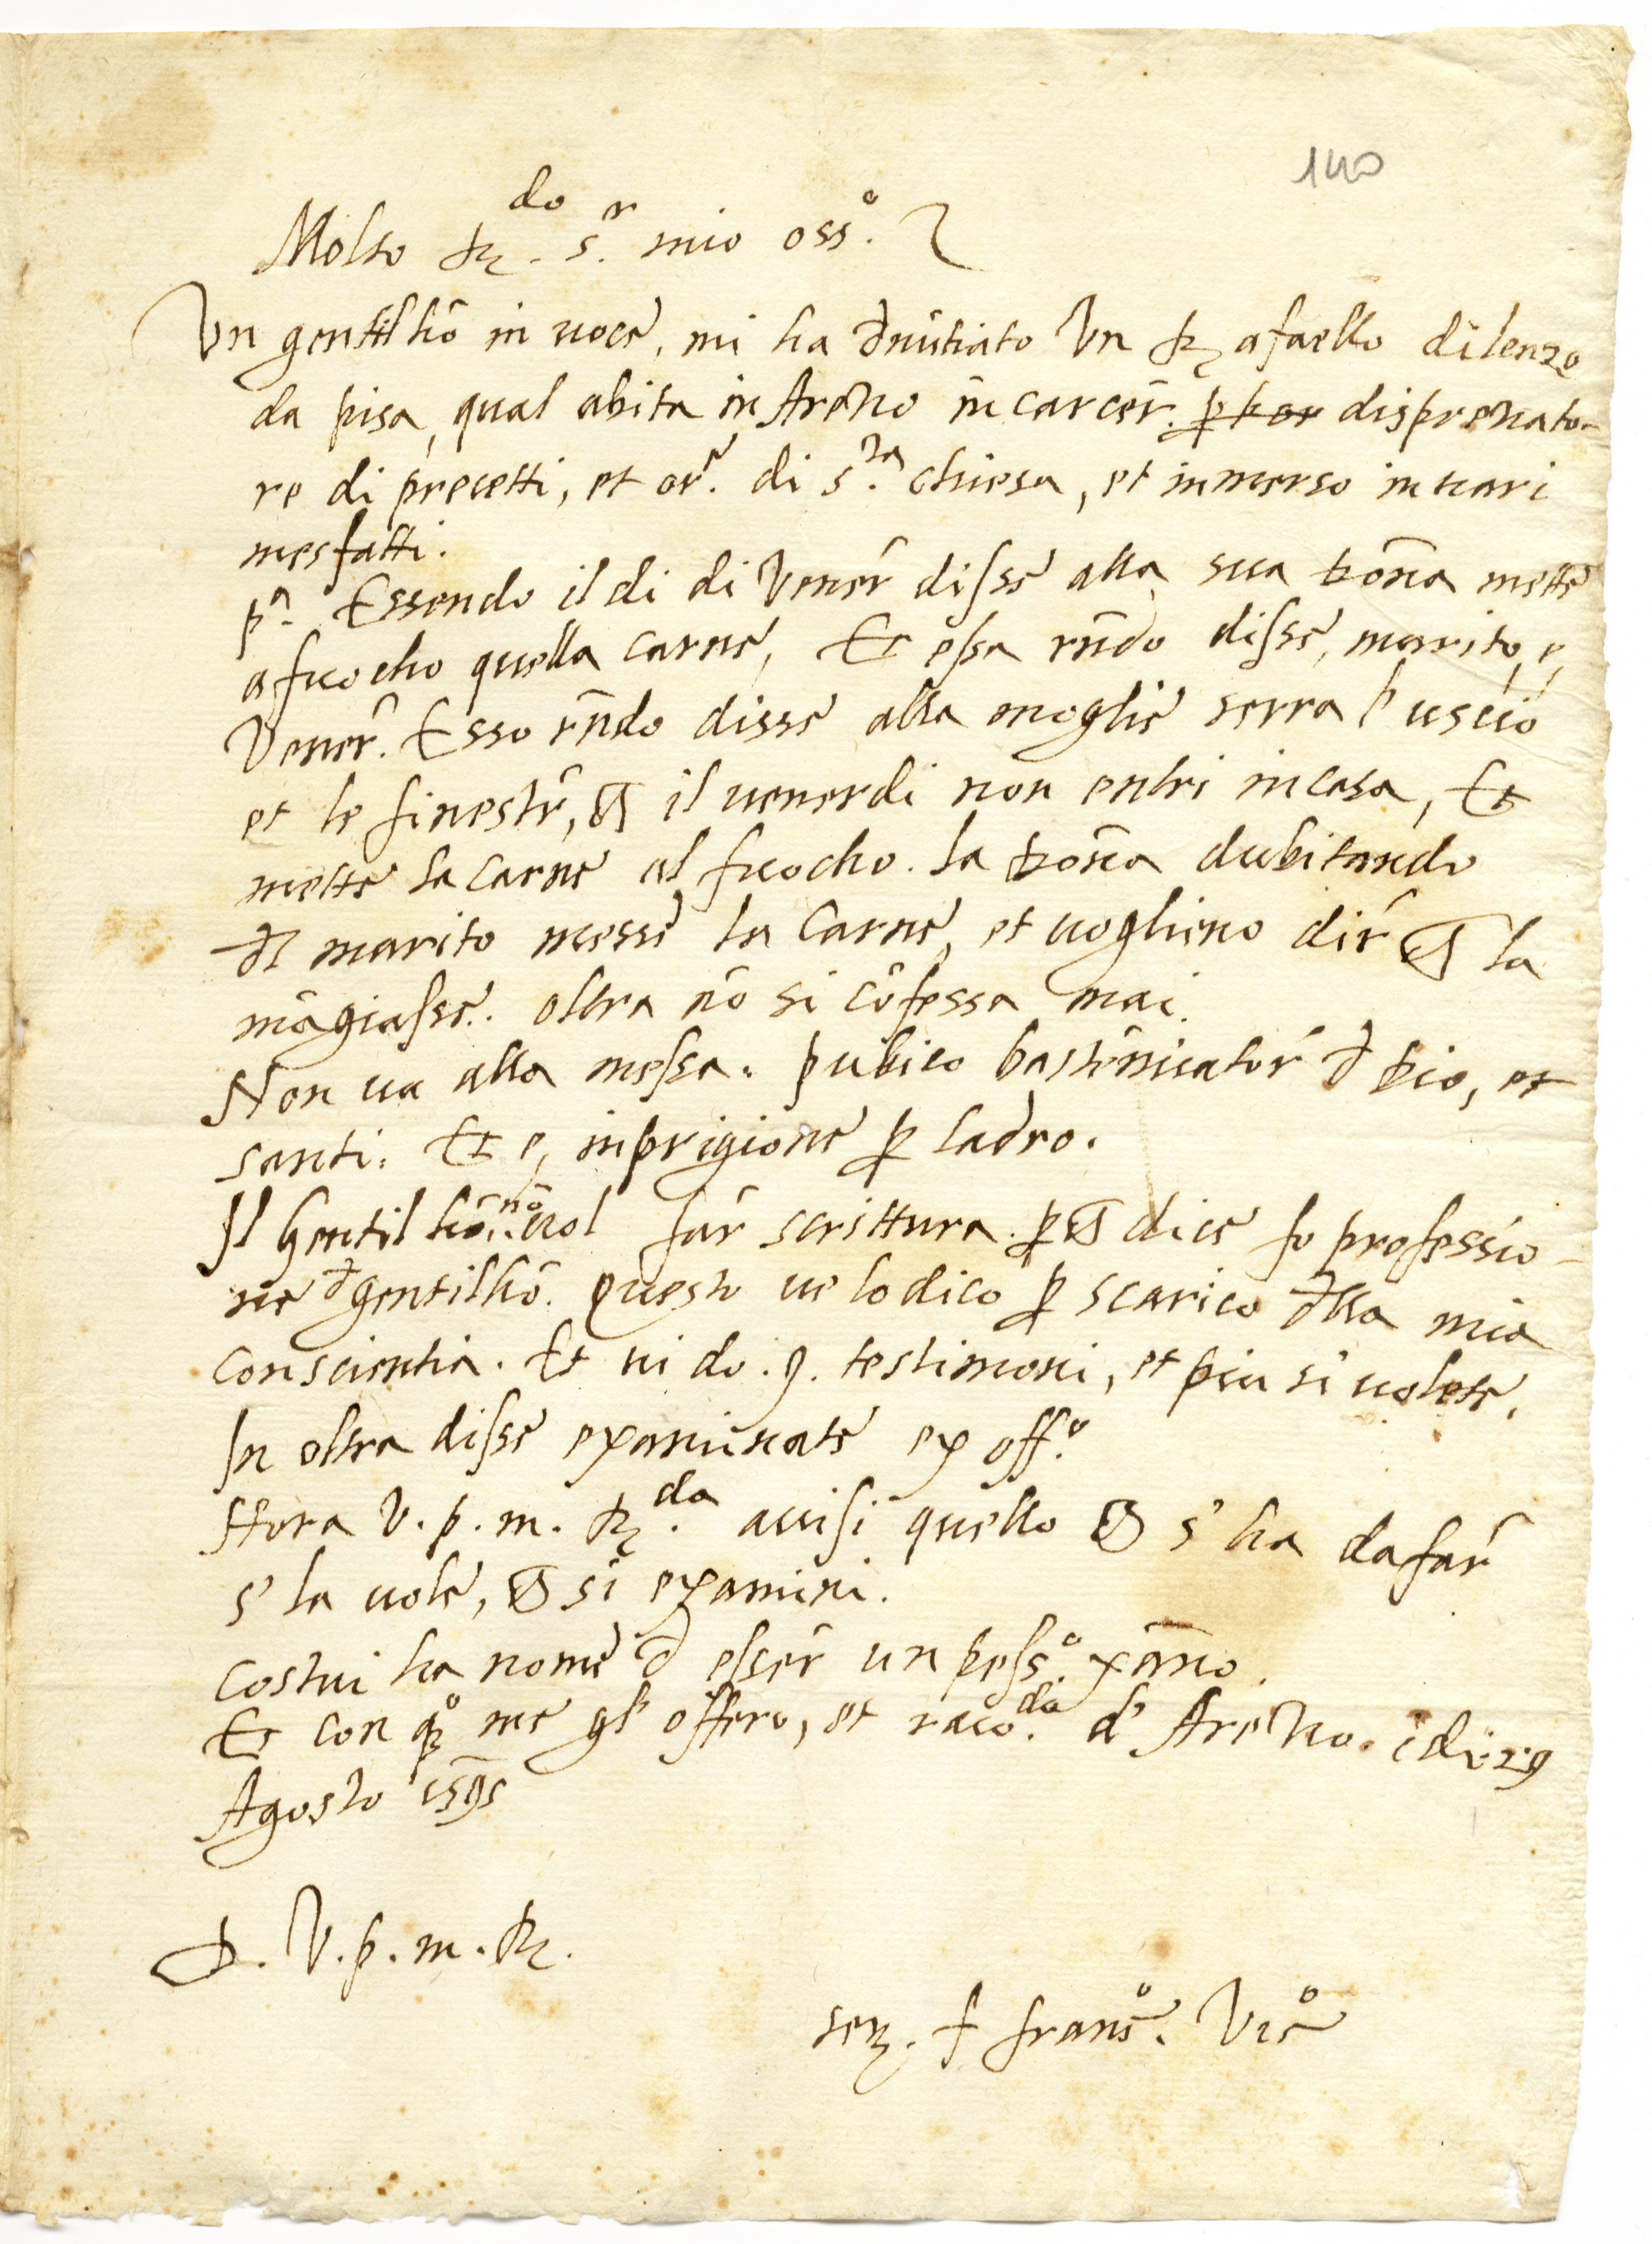 140
Molto R.do s.r mio oss.o
Un gentilhõ in voce, mi ha dñutiato Un Rafaello di lenzo
da pisa, qual abita in Arezzo in carcer̃. p̱ por disprezzato-
re di precetti, et or.ĩ di s.ta chiesa, et inmerso in vari
mesfatti.
p.a Essendo il di di Vener̃ disse alla sua dõna mette
a fuocho quella carne, Et essa rñdo disse, marito, e,
Vener̃. Esso rñdo disse alla moglie serra l'uscio
et le finestr̃, ch̃ il venerdi non entri in casa, Et
mette la carne al fuocho. la dõna dubitando
d̃l marito messe la carne, et vogliono dir̃ ch̃ la
mãgiasse. oltra nõ si cõfessa mai.
Non va alla messa. publico bastẽmiator̃ d̃ dio, et
santi. Et e, in prigione p̱ ladro.
Il Gentilhõ. nõ vol far scrittura. p̱ch̃ dice fo professio-
ne d̃ gentilhõ. Questo ve lo dico p̱ scarico d̃lla mia
conscientia. Et vi do .9. testimoni, et piu si volete,
In oltra disse examinate ex off.o
Hora V. p. m. R.da avisi quello ch̃ s'ha da far̃
s' la vole, ch̃ si examini.
Costui ha nome d̃ esser̃ un pess.o xr̃ano.
Et con q̃o me gl' offero, et racõ.do d' Arezzo. i di 29
Agosto
D. V. p. m. R.
ser. f frans.o Vic.o